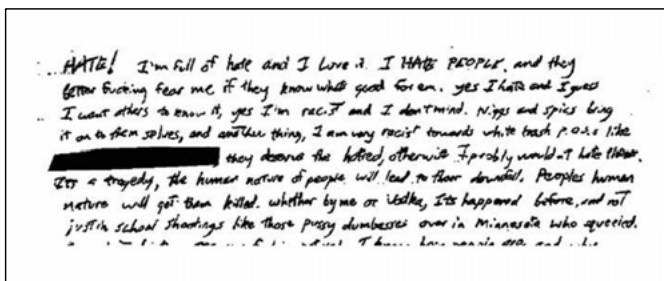 HATE! I'm full of hate and I love it. I HATE PEOPLE, and they
better fucking fear me if they know whats good for em. yes I hate and I guess
I want others to know it, yes I'm racist and I don't mind. Nigs and spics bring
it on to them selves, and another thing, I am very racist towards white trash P.O.S.s like
they deserve the hatred, otherwise I probly would-t hate them.
Its a tragedy, the human nature of people will lead to their downfall. Peoples human
nature will get them killed. whether by me or Vodka, Its happened before, and not
just in school shootings like those pussy dumbasses over in Minnesota who squeeled.